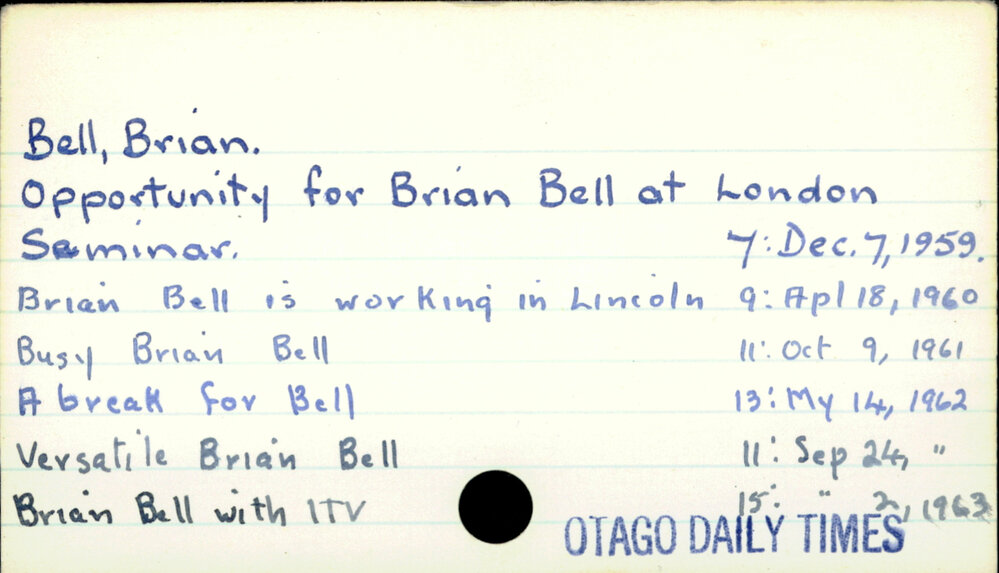 Bell, Brian.
Opportunity for Brian Bell at London
Seminar. 7: Dec. 7, 1959.
Brian Bell is working in Lincoln 9: Apl 18, 1960
Busy Brian Bell 11: Oct 9, 1961
A break for Bell 13: My 14, 1962
Versatile Brian Bell 11: Sep 24, "
Brian Bell with ITV 15: " 2, 1963
OTAGO DAILY TIMES